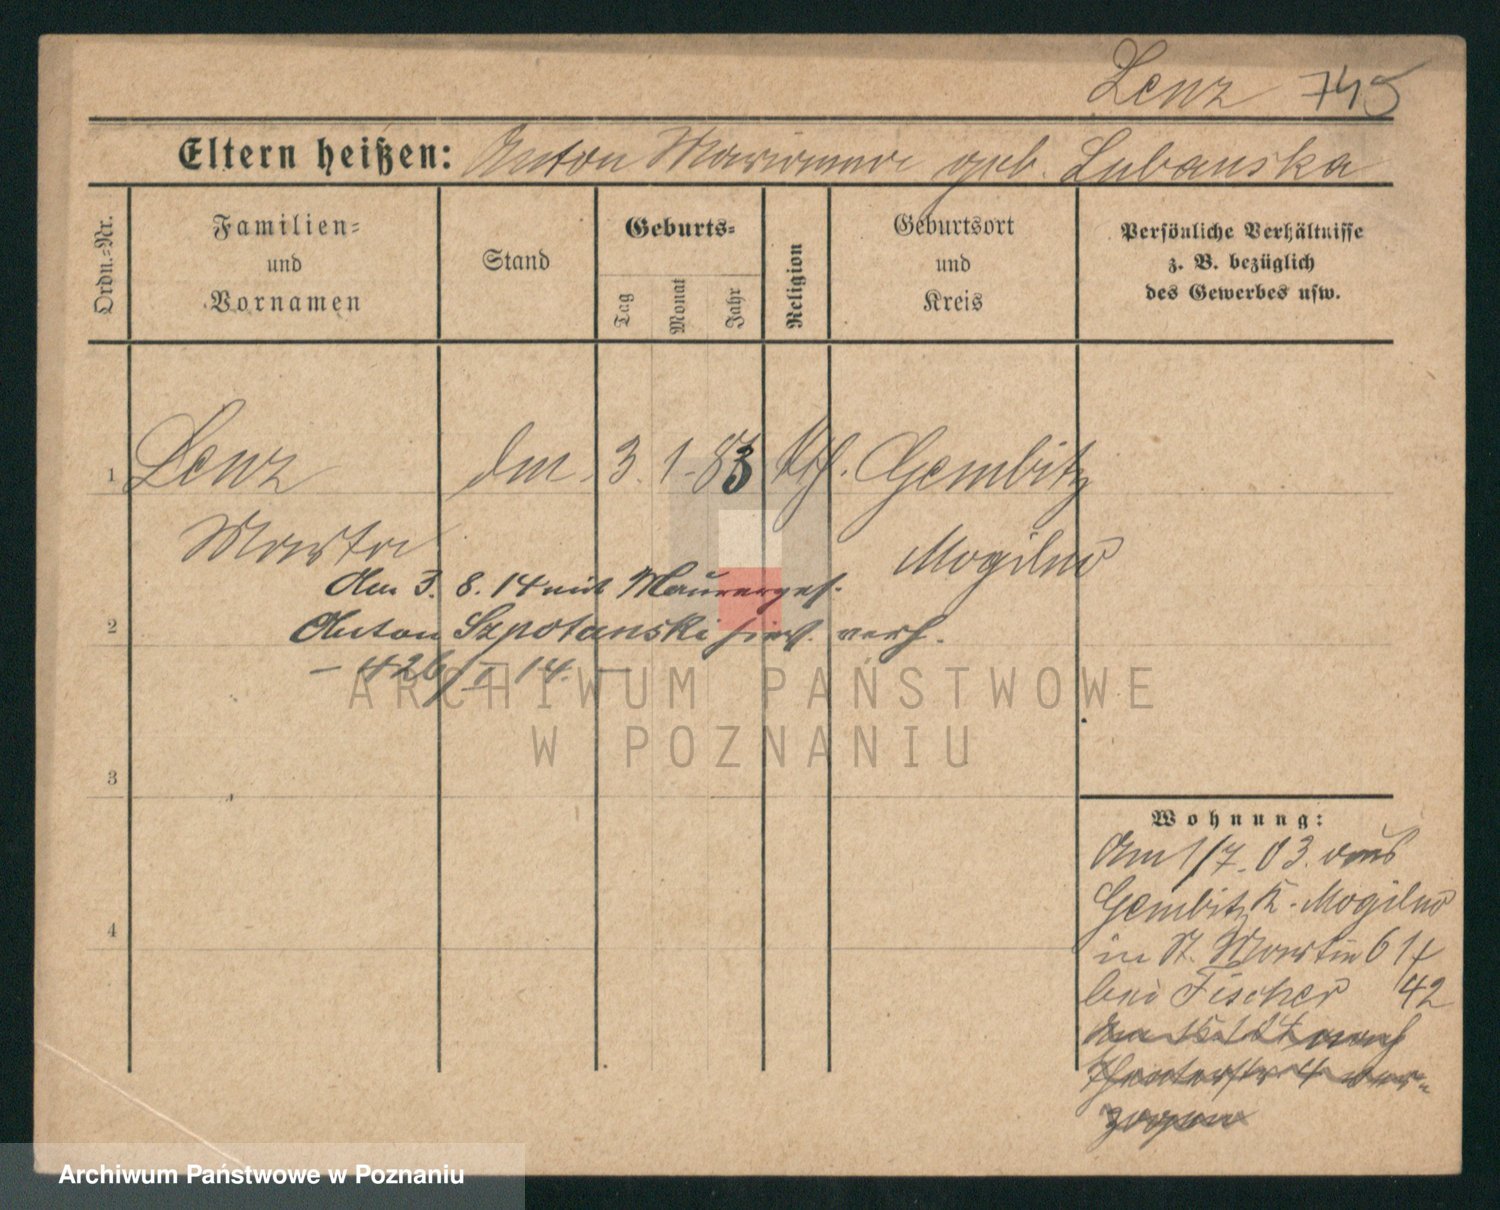 Lenz 745
Eltern heißen: Anton Marianna geb. Lubanska
Ordn.=Nr.
Familien=
und
Vornamen
Stand
Geburts=
Tag
Monat
Jahr
Religion
Geburtsort
und
Kreis
Persönliche Verhältnisse
z. B. bezüglich
des Gewerbes usw.
1 Lenz 3. 1. 83 kth. Gembitz
Marta Mogilno
Am 3. 8. 14 mit Maurerges.
2 Anton Szpotanski hier. verh.
– 426/I 14. –
3
4
Wohnung:
Am 1/7. 03. aus
Gembitz K. Mogilno
in St. Martin 61
bei Fischer 42
zogen
ARCHIWUM PAŃSTWOWE
W POZNANIU
Archiwum Państwowe w Poznaniu